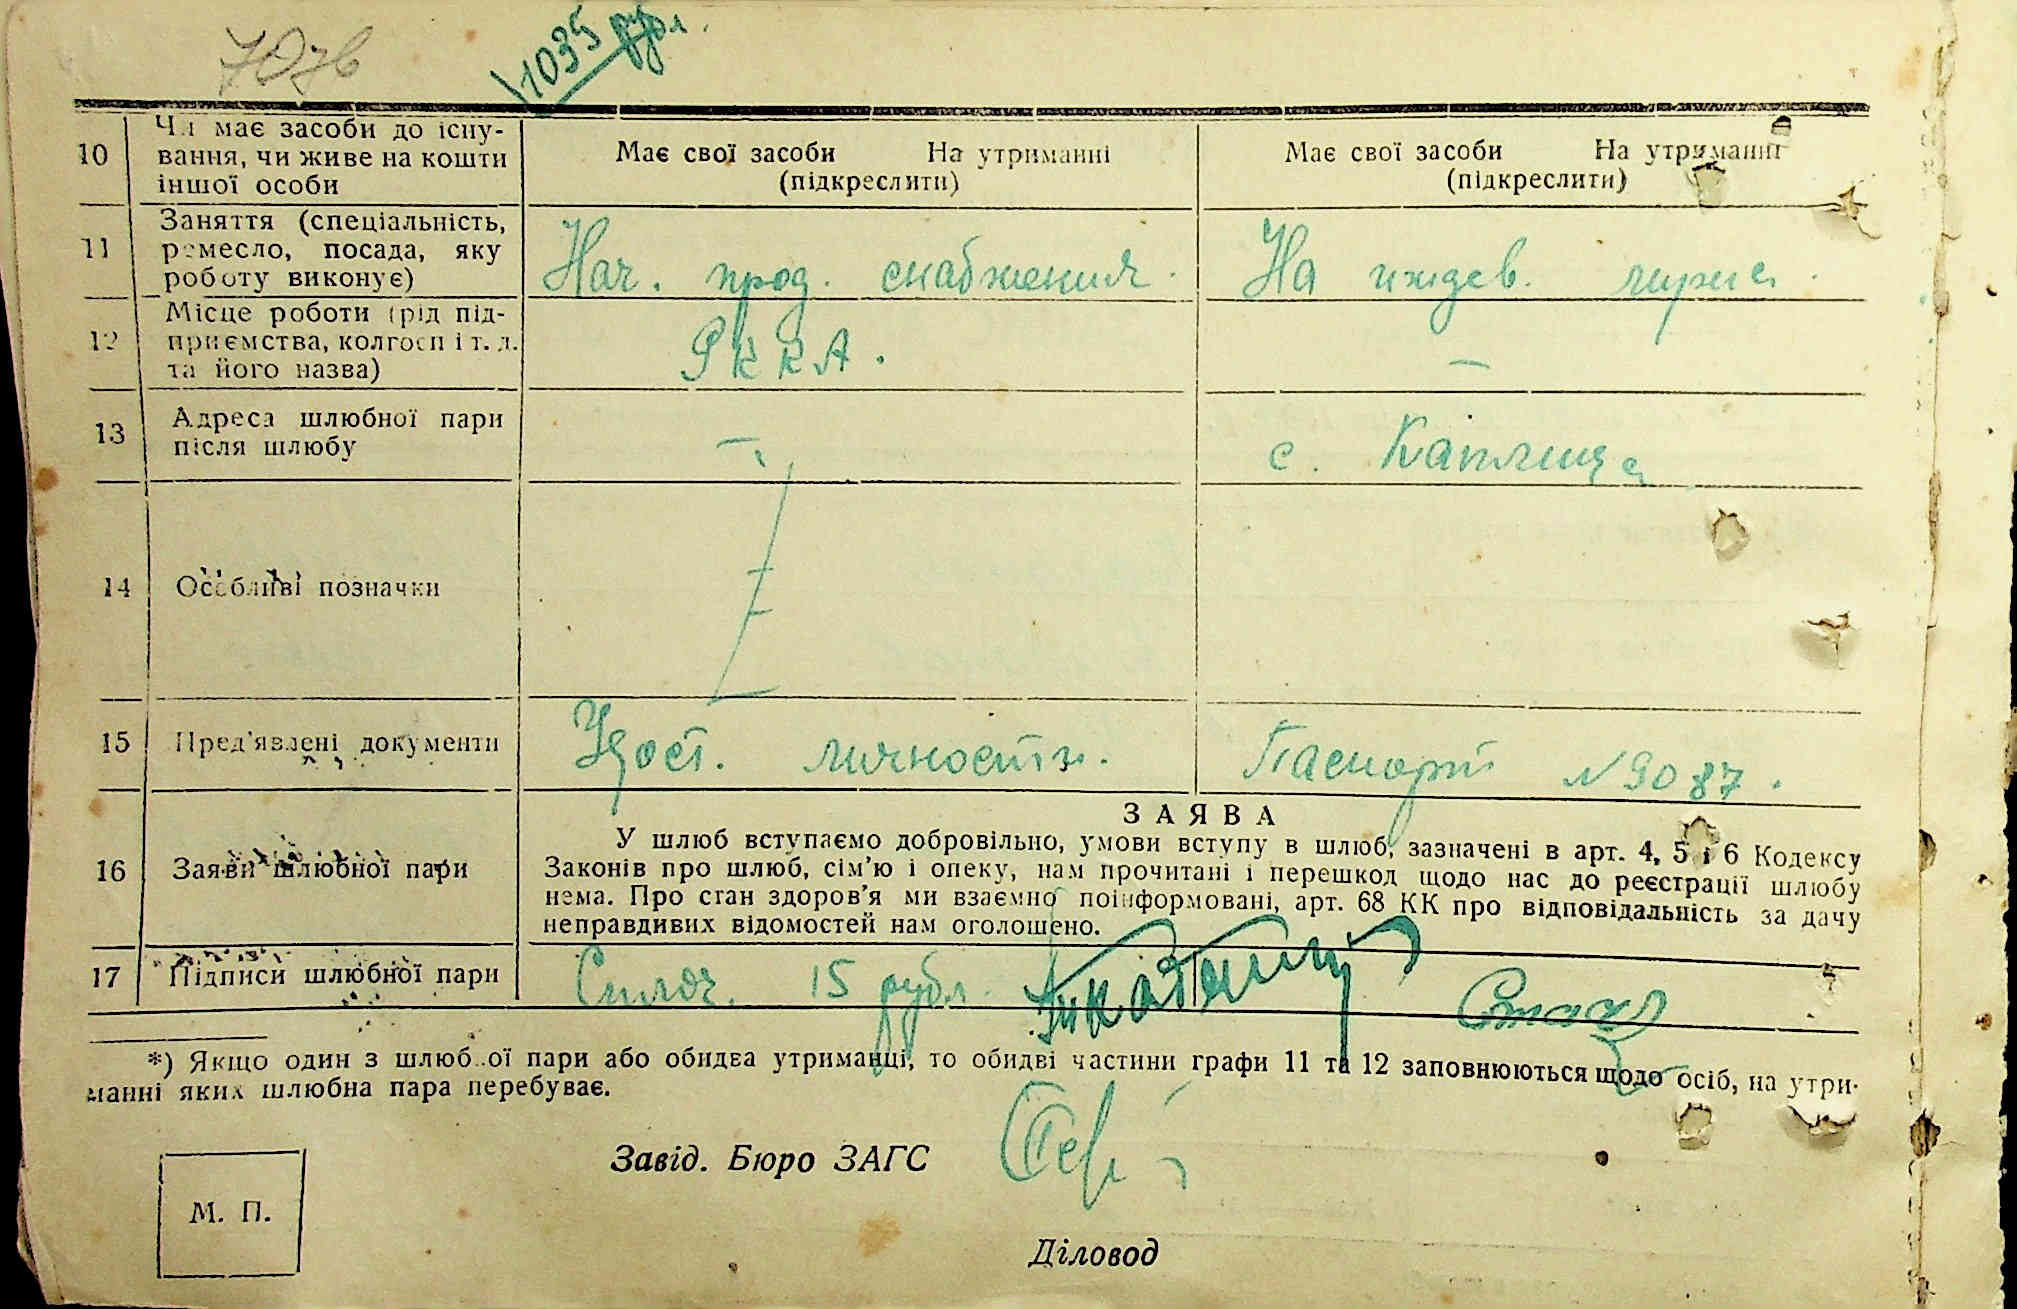 707в
1035 рубл.
10
Чи має засоби до існу-
вання, чи живе на кошти
іншої особи
Має свої засоби На утриманні
(підкреслити)
Має свої засоби На утриманні
(підкреслити)
11
Заняття (спеціальність,
ремесло, посада, яку
роботу виконує)
Нач. прод. снабжения.
На иждев. мужа.
12
Місце роботи (рід під-
приємства, колгосп і т. д.
та його назва)
РККА.
—
13
Адреса шлюбної пари
після шлюбу
—
с.
14
Особливі позначки
15
Пред'явлені документи
Удост. личности.
Паспорт №9087.
16
Заяви шлюбної пари
ЗАЯВА
У шлюб вступаємо добровільно, умови вступу в шлюб, зазначені в арт. 4, 5 і 6 Кодексу
Законів про шлюб, сім'ю і опеку, нам прочитані і перешкод щодо нас до реєстрації шлюбу
нема. Про стан здоров'я ми взаємно поінформовані, арт. 68 КК про відповідальність за дачу
неправдивих відомостей нам оголошено.
17
Підписи шлюбної пари
Сплоч. 15 рубл.
*) Якщо один з шлюбної пари або обидва утриманці, то обидві частини графи 11 та 12 заповнюються щодо осіб, на утри-
манні яких шлюбна пара перебуває.
Завід. Бюро ЗАГС
М. П.
Діловод